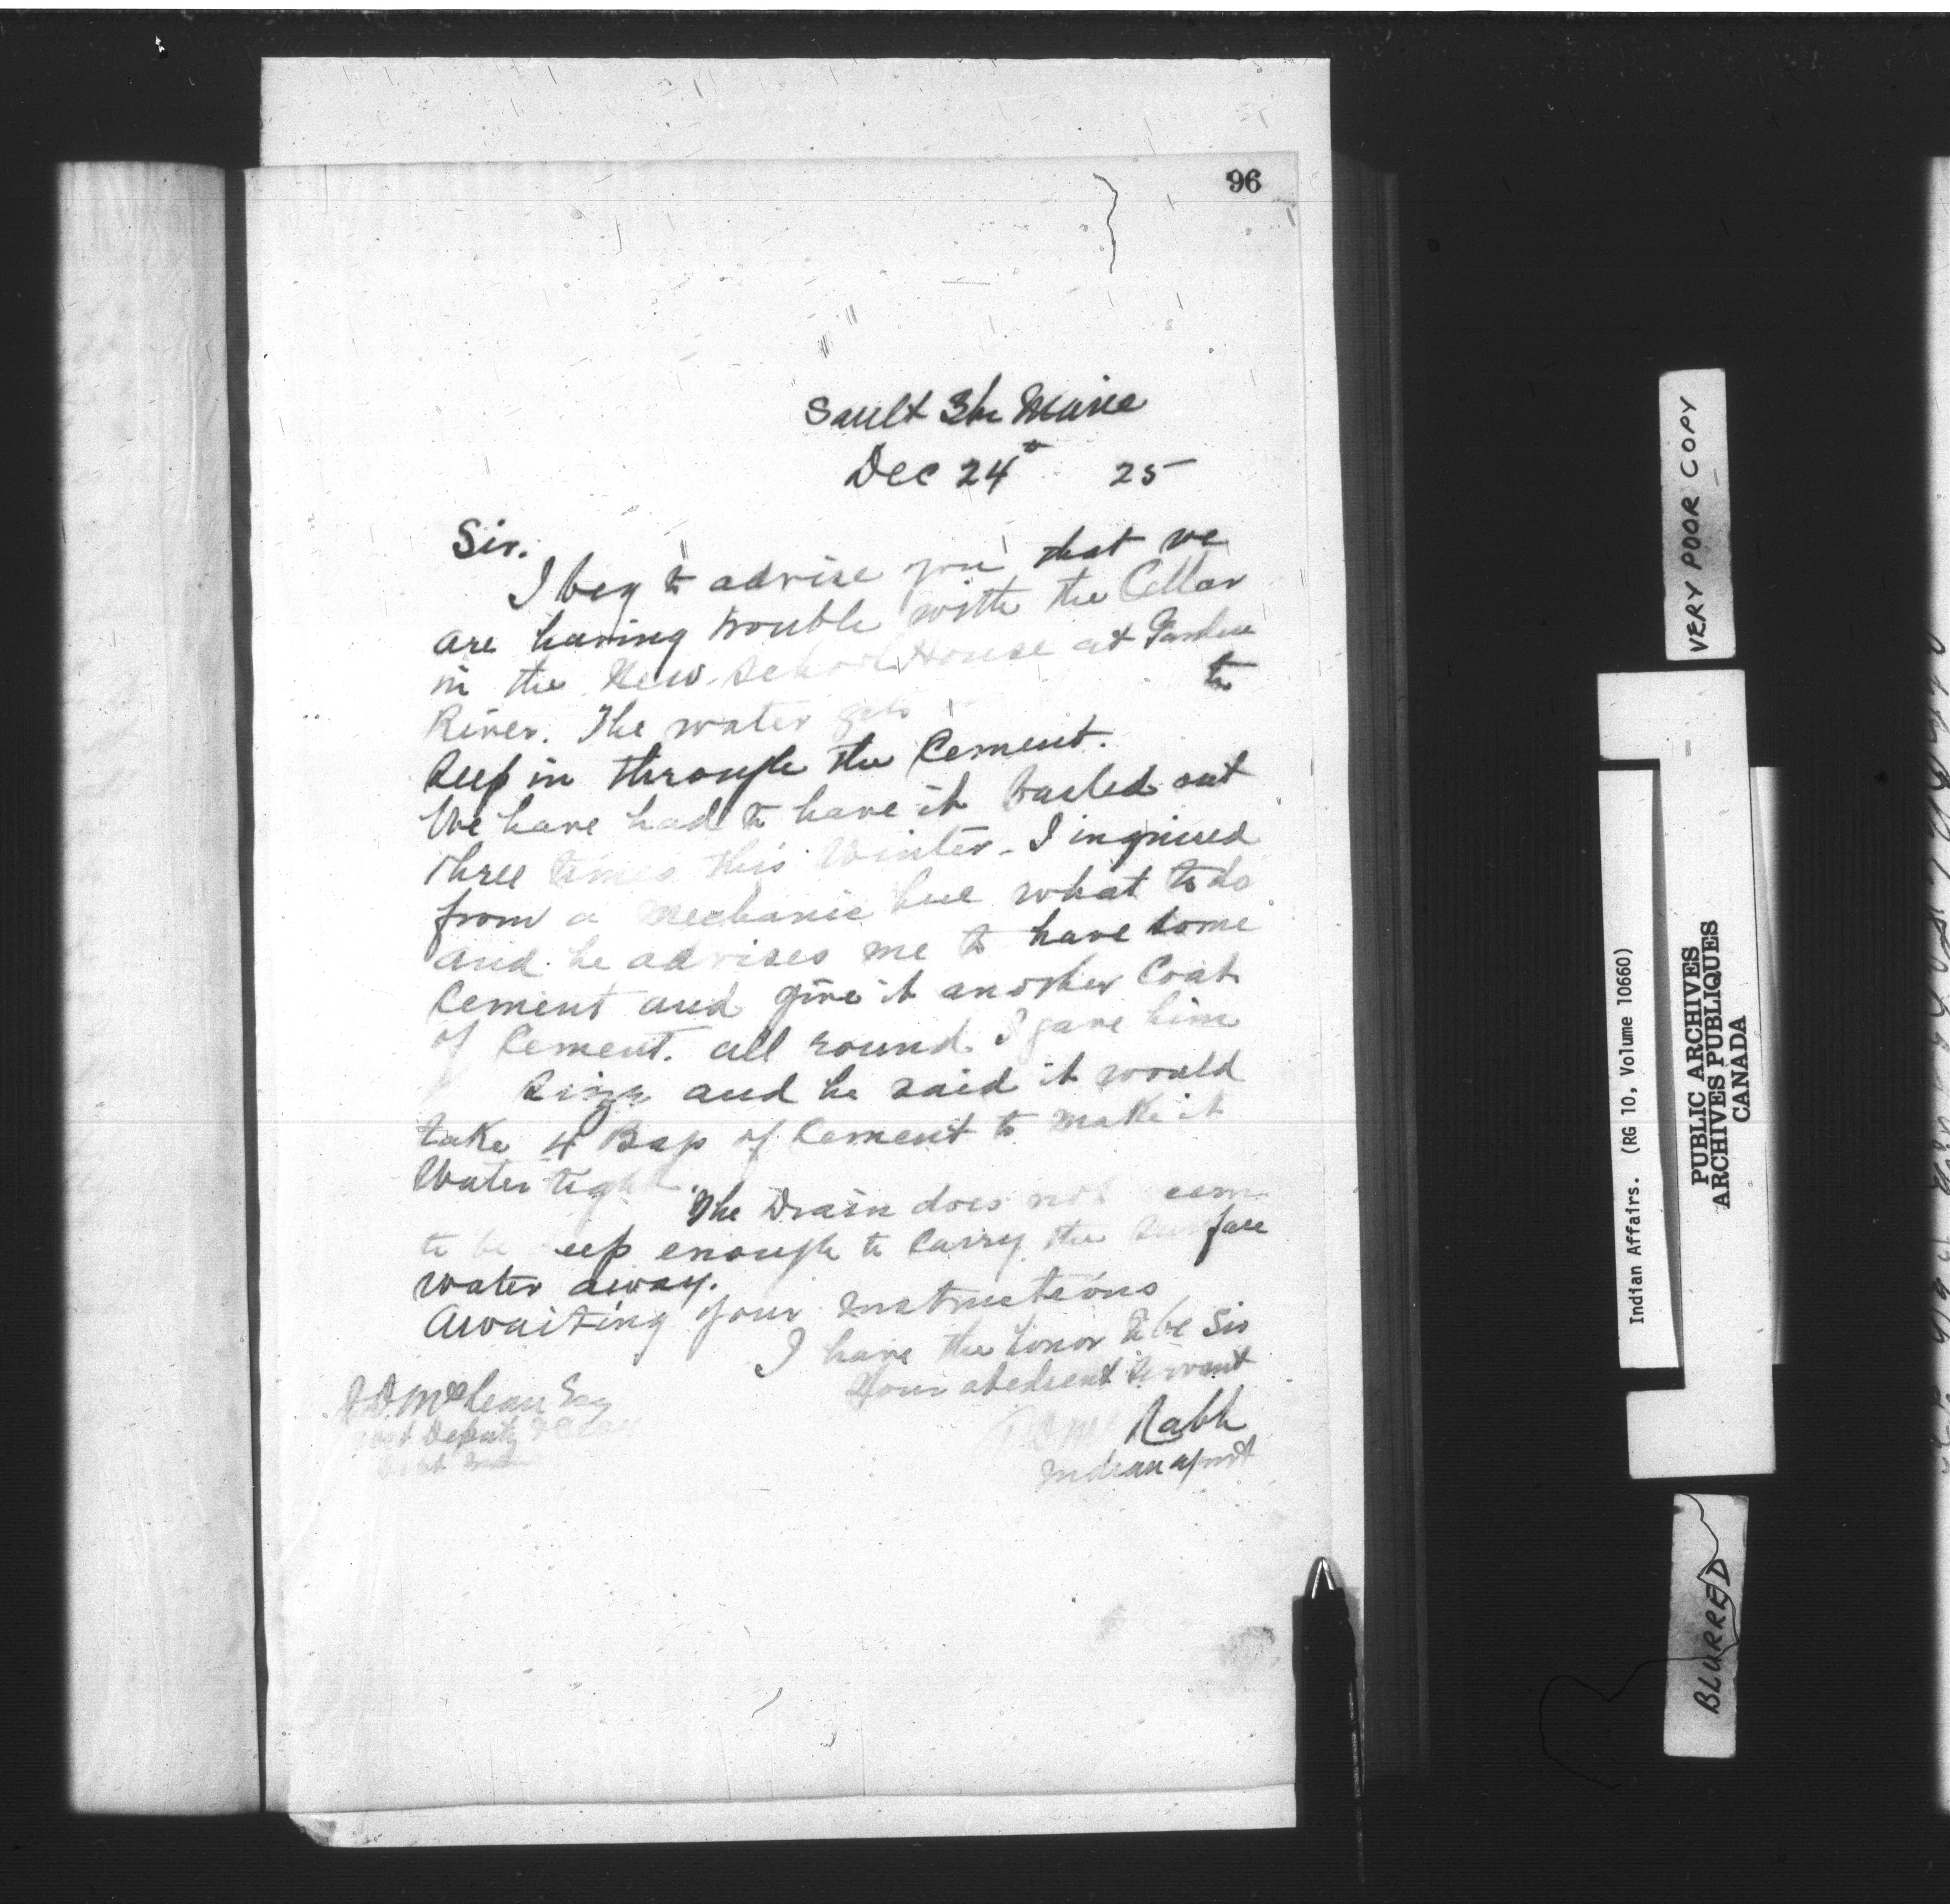 96
Sault Ste Marie
Dec 24th 25
Sir.
I beg to advise you that we
are having trouble with the Cellar
in the New School House at Garden
River. The water gets to
seep in through the Cement.
We have had to have it Bailed out
three times this Winter - I inquired
from a Mechanic here what to do
and he advises me to have some
Cement and give it another Coat
of Cement. all round I gave him
size and he said it would
take 4 Bags of Cement to make it
Water tight.
The Drain does not seem
to be deep enough to Carry the surface
water away.
Awaiting your Instructions
I have the honor to be Sir
Your obedient Servant
Rabb
Indian agent
J.D. McLean Esq
Deputy
VERY POOR COPY
Indian Affairs. (RG 10, Volume 10660)
PUBLIC ARCHIVES
ARCHIVES PUBLIQUES
CANADA
BLURRED